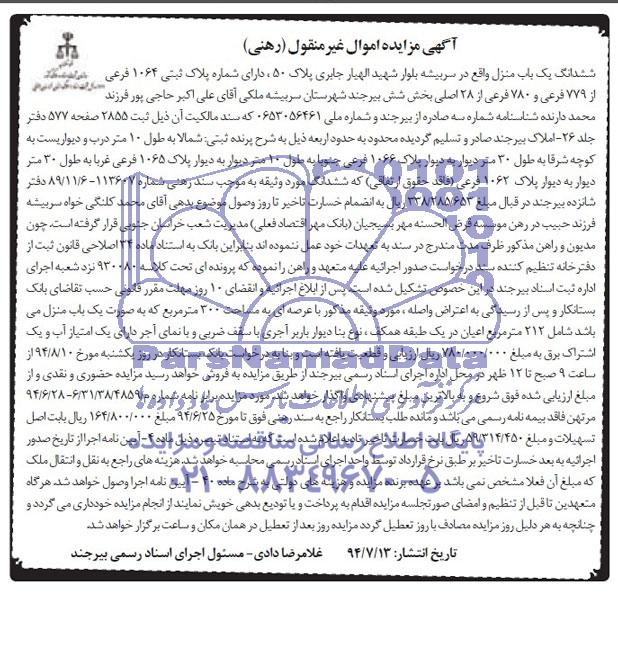 آگهی مزایده اموال غیر منقول (رهنی)
ششدانگ یک باب منزل واقع در سربیشه بلوار شهید الهیار جابری پلاک ۵۰ ، دارای شماره پلاک ثبتی ۱۰۶۴ فرعی
از ۷۷۹ فرعی و ۷۸۰ فرعی از ۲۸ اصلی بخش شش بیرجند شهرستان سربیشه ملکی آقای علی اکبر حاجی پور فرزند
محمد دارنده شناسنامه شماره سه صادره از بیرجند و شماره ملی ۰۶۵۳۰۵۶۴۶۱ که سند مالکیت آن ذیل ثبت ۲۸۵۵ صفحه ۵۷۷ دفتر
جلد ۲۶-املاک بیرجند صادر و تسلیم گردیده محدود به حدود اربعه ذیل به شرح پرنده ثبتی: شمالا به طول ۱۰ متر درب و دیواریست به
کوچه شرقا به طول ۳۰ متر دیوار به دیوار پلاک ۱۰۶۶ فرعی جنوبا به طول ۱۰ متر دیوار به دیوار پلاک ۱۰۶۵ فرعی غربا به طول ۳۰ متر
دیوار به دیوار پلاک ۱۰۶۲ فرعی (فاقد حقوق ارتفاقی) که ششدانگ مورد وثیقه به موجب سند رهنی شماره ۱۱۳۶۰۷-۸۹/۱۱/۶ دفتر
شانزده بیرجند در قبال مبلغ ۳۳۸/۲۸۵/۶۵۳ ریال به انضمام خسارت تاخیر تا روز وصول موضوع بدهی آقای محمد کلنگی خواه سربیشه
فرزند حبیب در رهن موسسه قرض الحسنه مهر بسیجیان (بانک مهر اقتصاد فعلی) مدیریت شعب خراسان جنوبی قرار گرفته است. چون
مدیون و راهن مذکور ظرف مدت مندرج در سند به تعهدات خود عمل ننموده اند بنابراین بانک به استناد ماده ۳۴ اصلاحی قانون ثبت از
دفترخانه تنظیم کننده سند درخواست صدور اجرائیه علیه متعهد و راهن را نموده که پرونده ای تحت کلاسه ۹۳۰۰۸۰ نزد شعبه اجرای
اداره ثبت اسناد بیرجند در این خصوص تشکیل شده است. پس از ابلاغ اجرائیه و انقضای ۱۰ روز مهلت مقرر قانونی حسب تقاضای بانک
بستانکار و پس از رسیدگی به اعتراض واصله ، مورد وثیقه مذکور با عرصه ای به مساحت ۳۰۰ مترمربع که به صورت یک باب منزل می
باشد شامل ۲۱۲ مترمربع اعیان در یک طبقه همکف ، نوع بنا دیوار باربر آجری با سقف ضربی و با نمای آجر دارای یک امتیاز آب و یک
اشتراک برق به مبلغ ۷۸۰/۰۰۰/۰۰۰ ریال ارزیابی و قطعیت یافته است و بنا به درخواست بانک بستانکار در روز یکشنبه مورخ ۹۴/۸/۱۰ از
ساعت ۹ صبح تا ۱۲ ظهر در محل اداره اجرای اسناد رسمی بیرجند از طریق مزایده به فروش خواهد رسید مزایده حضوری و نقدی و از
مبلغ ارزیابی شده فوق شروع و به بالاترین مبلغ پیشنهادی واگذار خواهد شد. مورد مزایده برابر نامه شماره م/۶۳۱/۳۸/۴۸۵۹-۹۴/۶/۲۸
مرتهن فاقد بیمه نامه رسمی می باشد و مانده طلب بستانکار راجع به سند رهنی فوق تا مورخ ۹۴/۶/۲۵ مبلغ ۱۶۴/۸۰۰/۰۰۰ ریال بابت اصل
تسهیلات و مبلغ ۵۹/۳۱۴/۴۵۰ ریال بابت خسارت تاخیر تادیه اعلام شده است که به استناد تبصره ذیل ماده ۴- آیین نامه اجرا از تاریخ صدور
اجرائیه به بعد خسارت تاخیر بر طبق نرخ قرارداد توسط واحد اجرای اسناد رسمی محاسبه خواهد شد. هزینه های راجع به نقل و انتقال ملک
که مبلغ آن فعلا مشخص نمی باشد بر عهده برنده مزایده و هزینه های دولتی به شرح ماده ۴۰ - آیین نامه اجرا وصول خواهد شد. هرگاه
متعهدین تا قبل از تنظیم و امضای صورتجلسه مزایده اقدام به پرداخت و یا تودیع بدهی خویش نمایند از انجام مزایده خودداری می گردد و
چنانچه به هر دلیل روز مزایده مصادف با روز تعطیل گردد مزایده روز بعد از تعطیل در همان مکان و ساعت برگزار خواهد شد.
تاریخ انتشار: ۹۴/۷/۱۳ غلامرضا دادی- مسئول اجرای اسناد رسمی بیرجند
ParsNamadData
۰۲۱-۸۸۳۴۹۶۷۰-۵